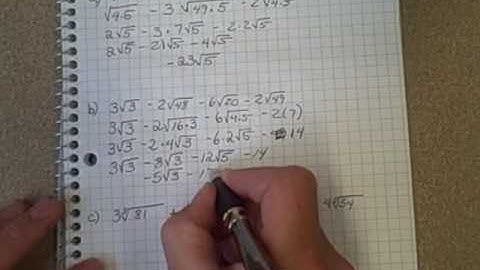 √4·5 - 3√49·5 - 2√4·5
2√5 - 3·7√5 - 2·2√5
2√5 - 21√5 - 4√5
-23√5
b) 3√3 - 2√48 - 6√20 - 2√49
3√3 - 2√16·3 - 6√4·5 - 2(7)
3√3 - 2·4√3 - 6·2√5 - 14
3√3 - 8√3 - 12√5 - 14
-5√3 - 1
c) 3∛81
4∛54